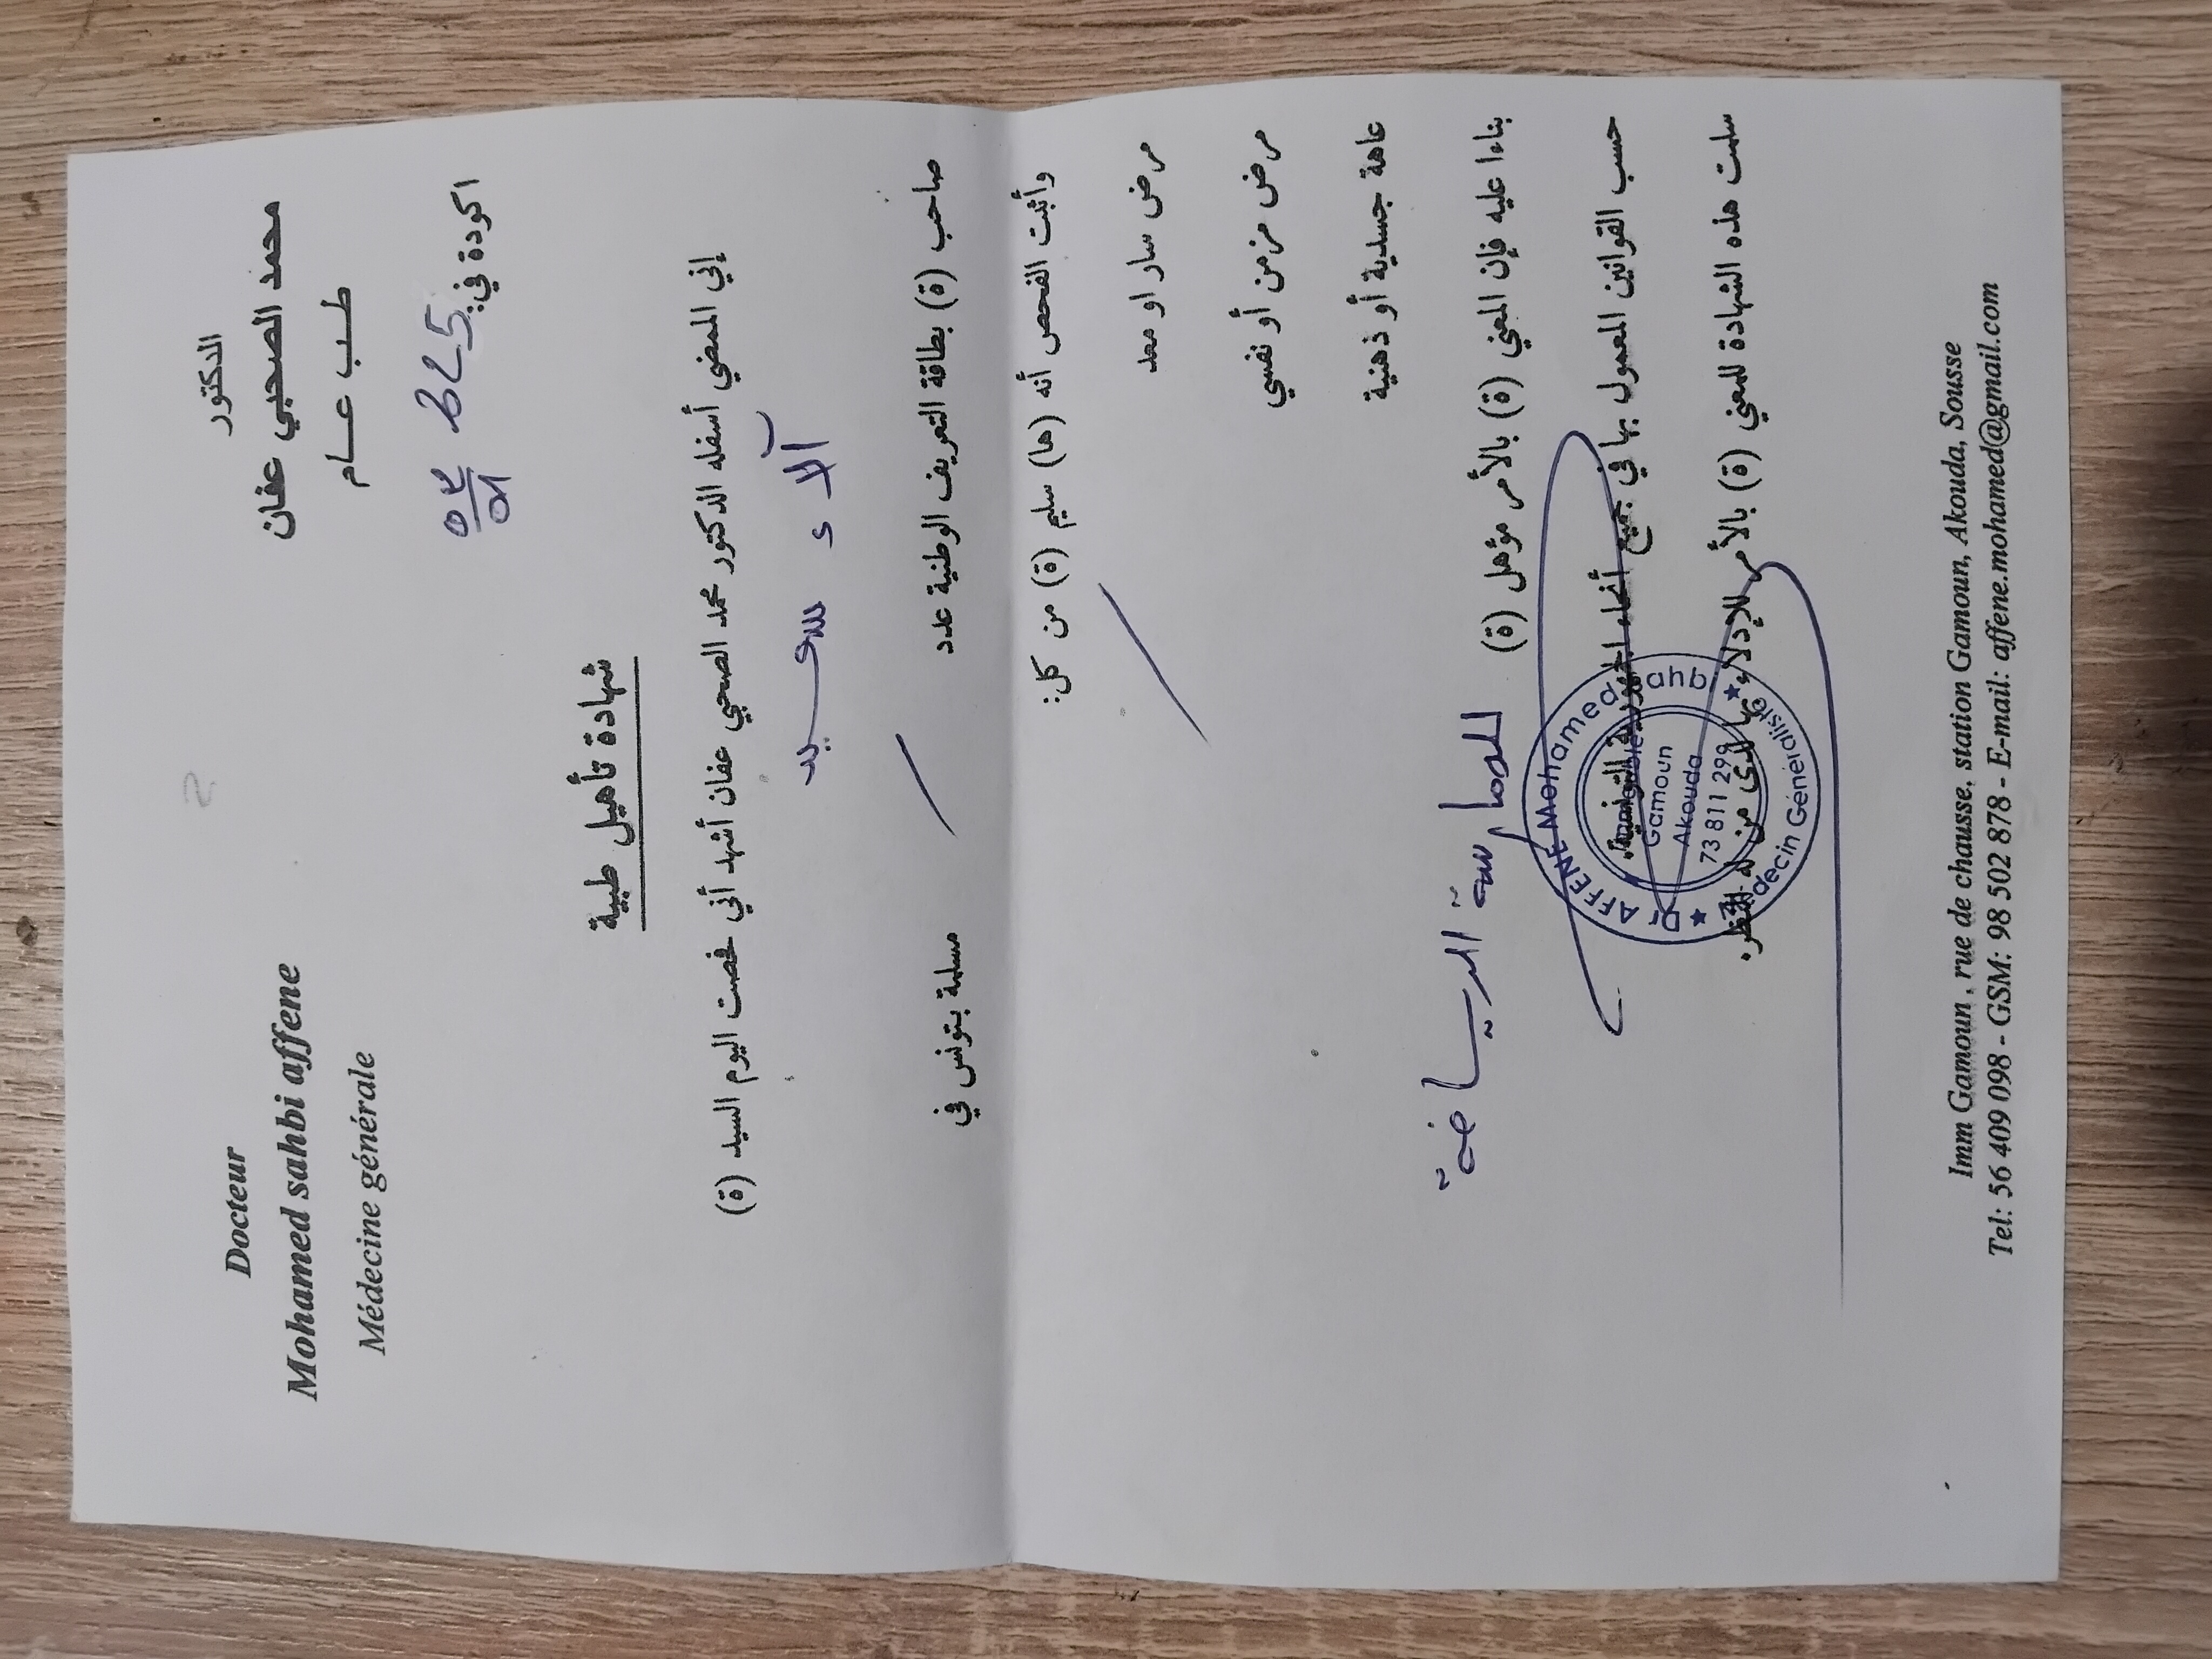 Docteur
Mohamed sahbi affene
Médecine générale
الدكتور
محمد الصحبي عفان
طب عام
اكودة في:
شهادة تأهيل طبية
إني الممضي أسفله الدكتور محمد الصحبي عفان أشهد أني فحصت اليوم السيد (ة)
آلاء سعيد
صاحب (ة) بطاقة التعريف الوطنية عدد مسلمة بتونس في
وأثبت الفحص أنه (ها) سليم (ة) من كل:
مرض سار او معد
مرض مزمن أو نفسي
عاهة جسدية أو ذهنية
بناءا عليه فإن المعني (ة) بالأمر مؤهل (ة) لممارسة الرياضة
حسب القوانين المعمول بها في جميع أنحاء الجمهورية التونسية.
سلمت هذه الشهادة للمعني (ة) بالأمر للإدلاء بها لدى من له النظر.
Dr AFFENE Mohamed Sahbi
Gamoun
Akouda
73 811 299
Médecin Généraliste
Imm Gamoun , rue de chausse, station Gamoun, Akouda, Sousse
Tel: 56 409 098 - GSM: 98 502 878 - E-mail: affene.mohamed@gmail.com